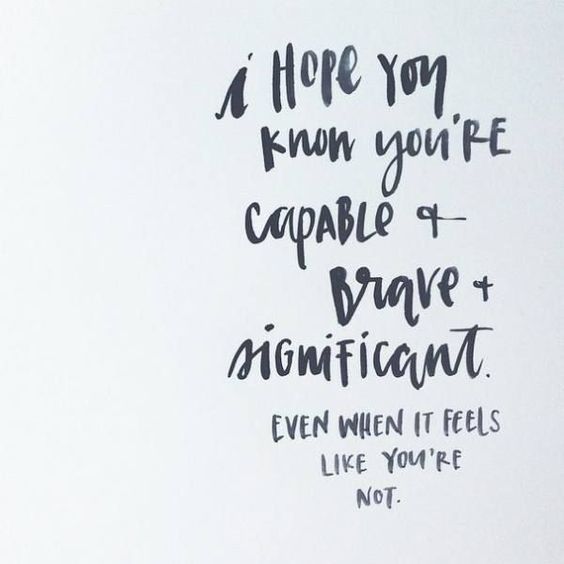 i HOPE YOU
KNOW yOU'RE
CAPABLE +
BRAVE +
SIGNIFICANT.
EVEN WHEN IT FEELS
LIKE YOU'RE
NOT.